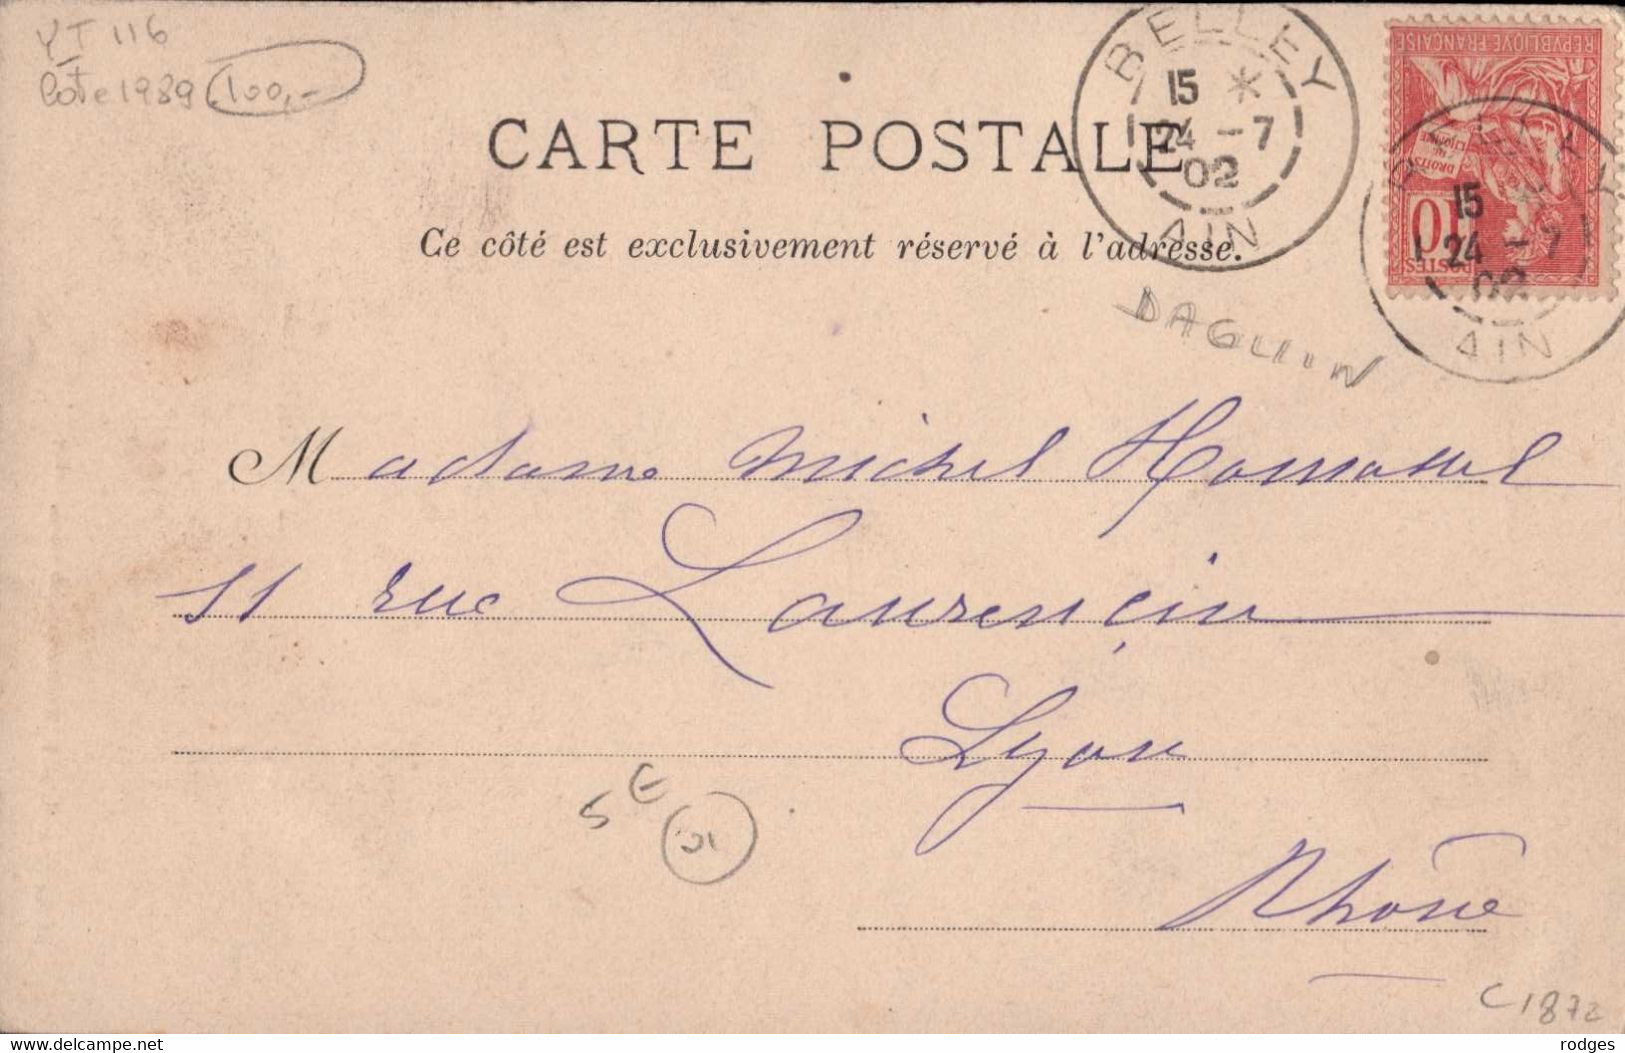 YT 116
Cote 1989 100,-
CARTE POSTALE
Ce côté est exclusivement réservé à l'adresse.
BELLEY
15 *
24 -7
02
AIN
REPVBLIQVE FRANÇAISE
DROITS DE L'HOMME
10
POSTES
BELLEY
15 *
24 -7
02
AIN
DAGUIN
Madame Michel
11 rue Laurencin
Lyon
5 E
Rhône
C1872
rodges
delcampe.net